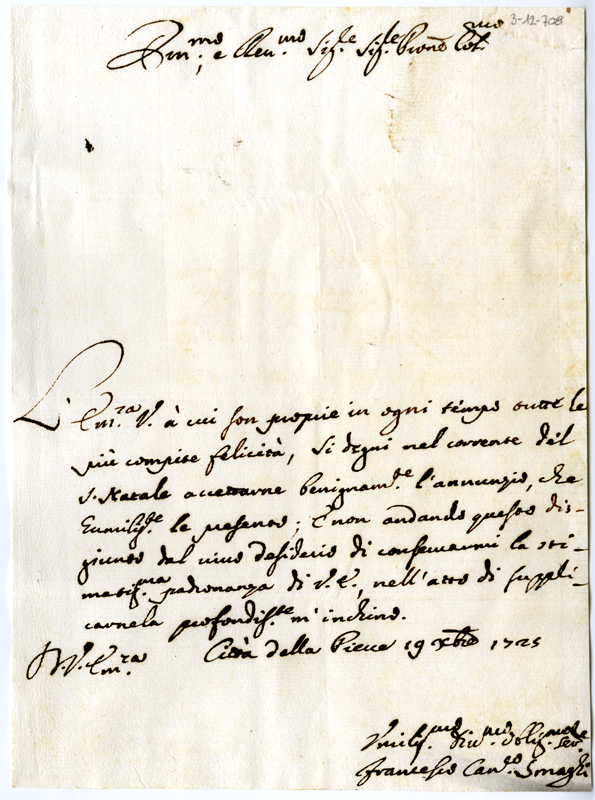 3-12-708
Em.mo, e Reu.mo Sig.re Sig.re Prone Col.mo
L'Em.za V. à cui son proprie in ogni tempo tutte le
più compite felicità, si degni nel corrente del
S. Natale accettarne benignam.te l'annunzio, che
Eumilis.te le presento; E non andando questo dis-
giunto dal vivo desiderio di conservarmi la sti-
matis.ma padronanza di V.E., nell'atto di suppli-
carnela profondis.te m'inchino.
D.V.Em.za Città della Pieve 19 Xbre 1725
Vmilis.mo Diu.mo Oblig.mo Ser.re
Francesco Can.co